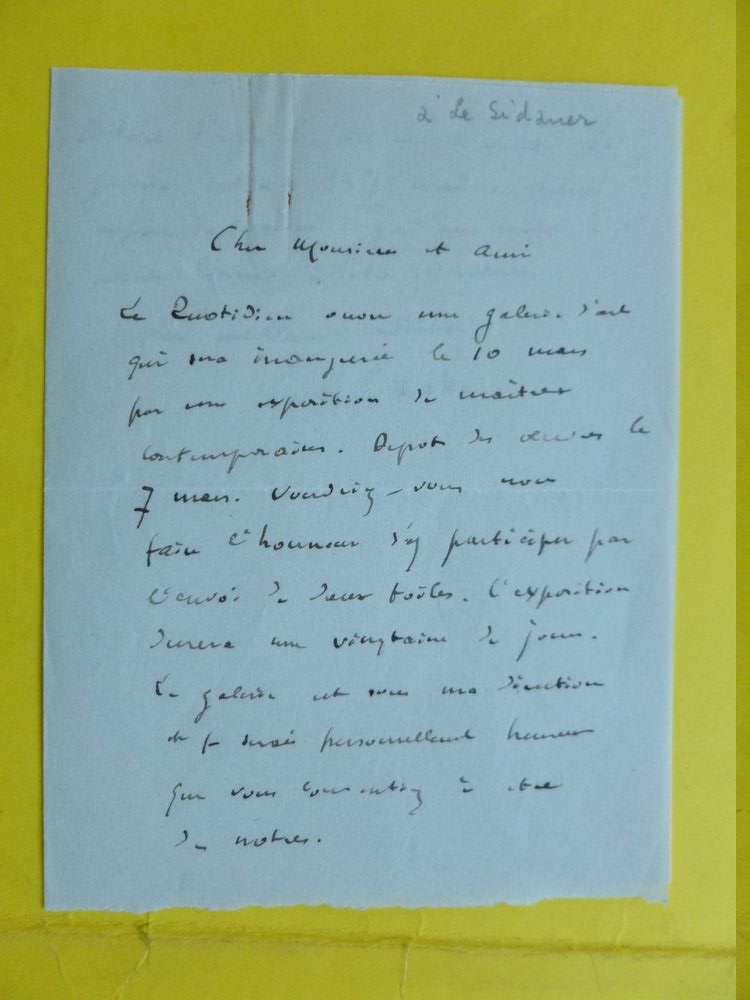 à Le Sidaner
Cher Monsieur et ami
Le Quotidien ouvre une galerie d'art
qui sera inaugurée le 10 mars
par une exposition de maîtres
contemporains. Depot des œuvres le
7 mars. Voudriez-vous nous
faire l'honneur d'y participer par
l'envoi de deux toiles. L'exposition
durera une vingtaine de jours.
La galerie est sous ma direction
et je serais personnellement heureux
que vous consentiez à être
des notres.